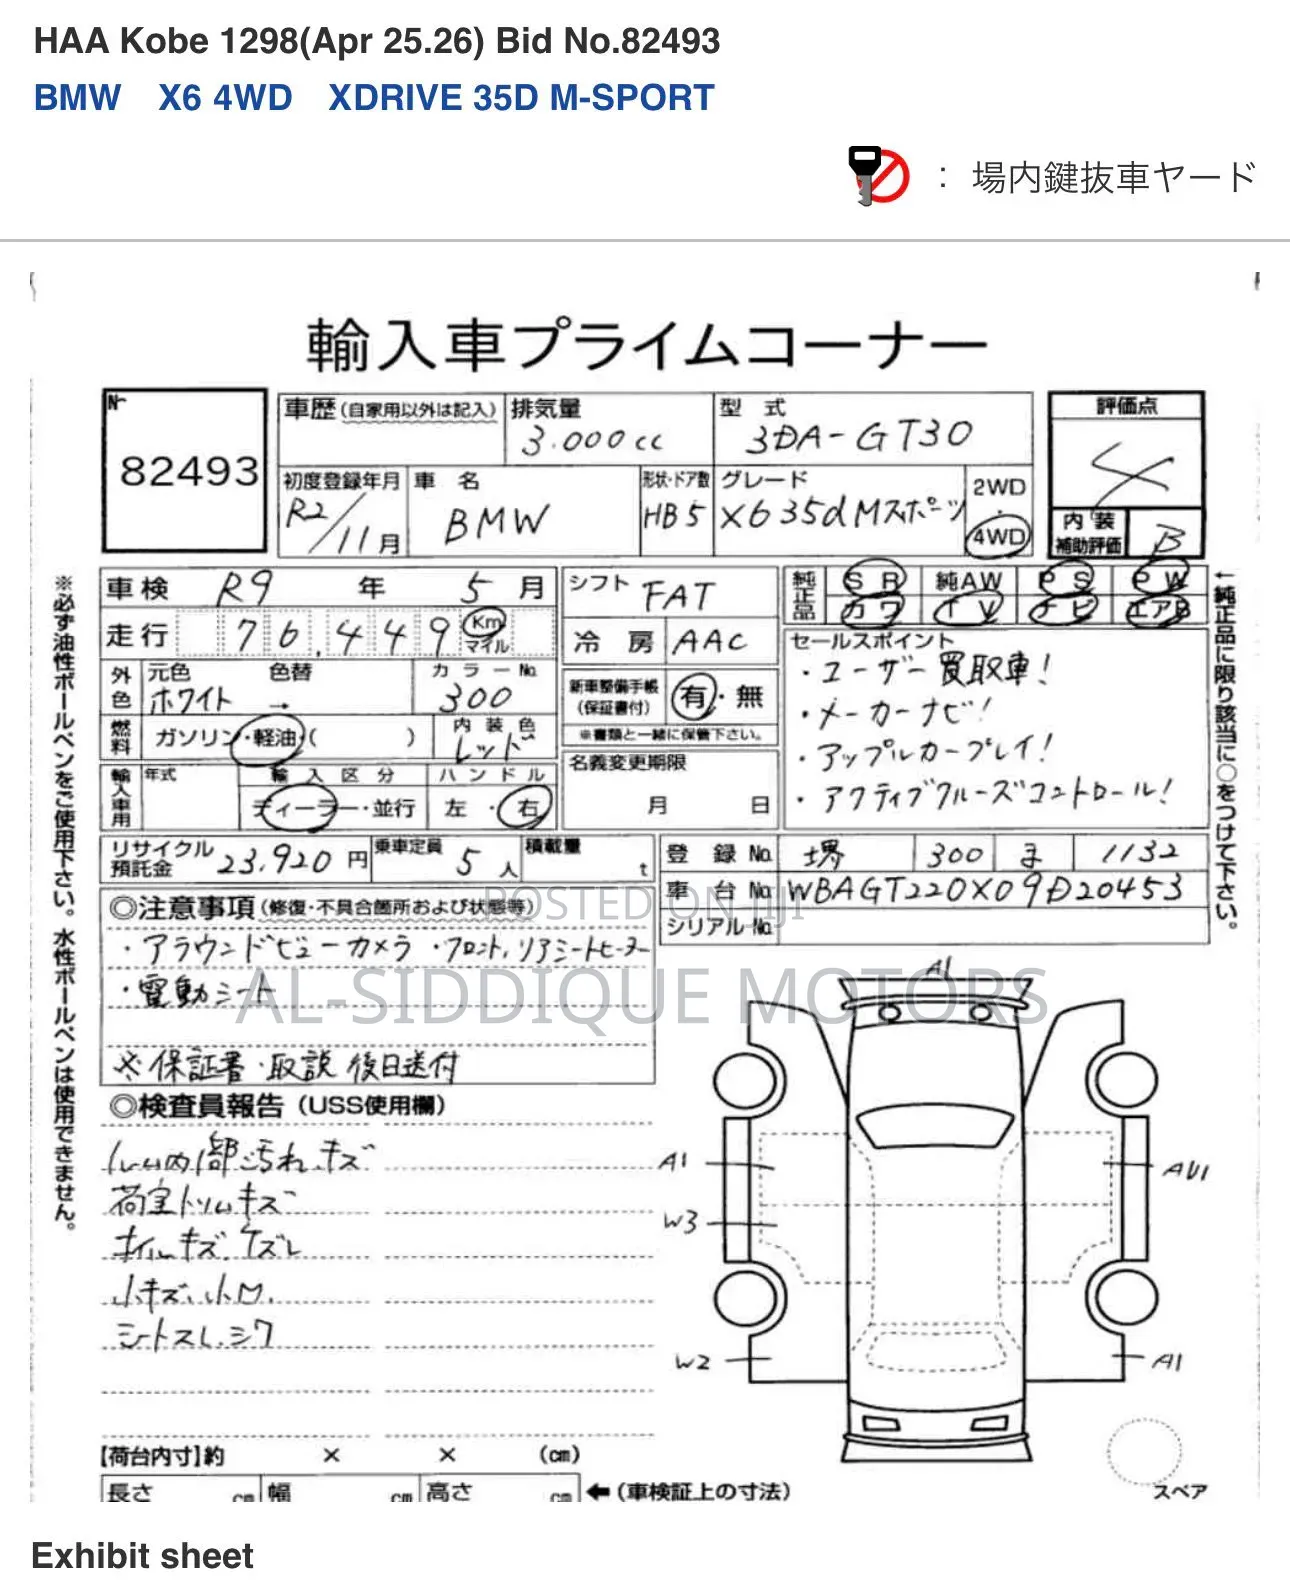 HAA Kobe 1298(Apr 25.26) Bid No.82493
BMW X6 4WD XDRIVE 35D M-SPORT
： 場内鍵抜車ヤード
輸入車プライムコーナー
№
82493
車歴(自家用以外は記入)
排気量
3.000cc
型 式
3DA-GT30
評価点
4
初度登録年月
R2/11月
車 名
BMW
形状・ドア数
HB5
グレード
X6 35d Mスポーツ
2WD
・
4WD
内 装
補助評価
B
車検 R9 年 5 月
シフト FAT
純正品
SR 純AW PS PW
カワ TV ナビ エアB
走行 76,449 Km
マイル
冷 房 AAC
セールスポイント
・ユーザー買取車!
・メーカーナビ!
・アップルカープレイ!
・アクティブクルーズコントロール!
外色
元色 色替
ホワイト →
カラーNo.
300
新車整備手帳
(保証書付)
有・無
※書類と一緒に保管下さい。
燃料
ガソリン・軽油・( )
内装色
レッド
名義変更期限
月 日
輸入車用
年式
輸入区分
ディーラー・並行
ハンドル
左・右
リサイクル
預託金 23,920 円
乗車定員 5 人
積載量 t
登 録 No. 堺 300 ま 1132
車 台 No. WBAGT220X09D20453
シリアルNo.
◎注意事項(修復・不具合箇所および状態等)
・アラウンドビューカメラ ・フロント,リアシートヒーター
・電動シート
※保証書・取説 後日送付
◎検査員報告（USS使用欄）
ルーム内部汚れ.キズ
荷室トリムキズ
ホイルキズ.ケズレ
小キズ.小凹.
シートスレ.シワ
A1
A1
AU1
W3
W2
A1
スペア
【荷台内寸】約 × × (cm)
長さ cm 幅 cm 高さ cm ←（車検証上の寸法）
※必ず油性ボールペンをご使用下さい。水性ボールペンは使用できません。
←純正品に限り該当に○をつけて下さい。
POSTED ON JIJI
AL-SIDDIQUE MOTORS
Exhibit sheet